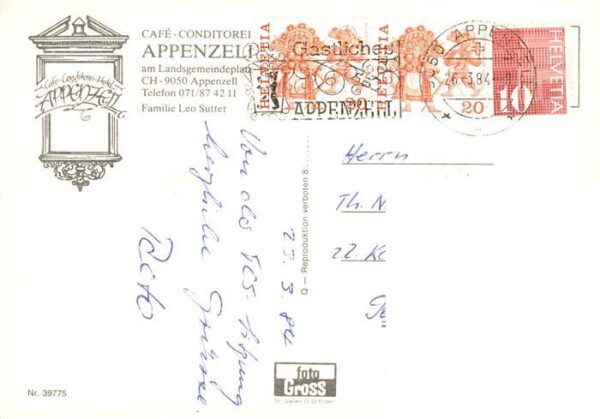 CAFÉ-CONDITOREI
APPENZELL
am Landsgemeindeplatz
CH-9050 Appenzell
Telefon 071/87 42 11
Familie Leo Sutter
Café-Conditorei-Hotel
APPENZELL
HELVETIA
20
HELVETIA
20
HELVETIA
10
Gastliches
APPENZELL
9050 APPENZELL
26.-3.84
23.3.84
Von der FCS-Sitzung
herzliche Grüsse
Reto
Herrn
Th. N
22. Ke
Q — Reproduktion verboten 8
foto
Gross
St. Gallen
Nr. 39775